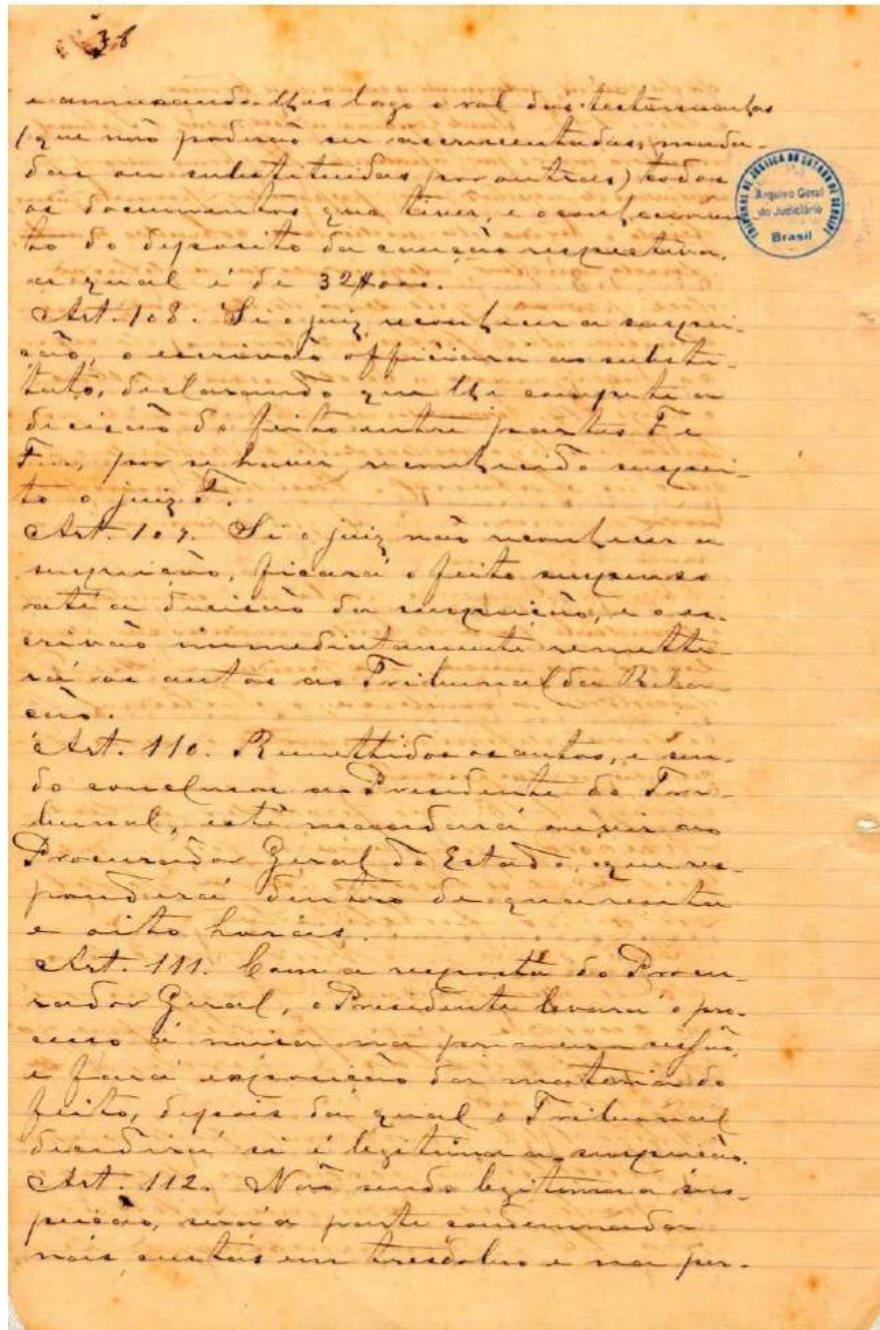 38
e annexando-lhes logo o rol das testemunhas
(que não poderão ser accrescentadas, muda-
das ou substituidas por outras) todos
os documentos que tiver, e o conhecimen-
to do deposito da caução respectiva,
a qual é de 32$000.
Art. 108. Si o juiz reconhecer a suspei-
ção, o escrivão officiará ao substi-
tuto, declarando que lhe compete a
decisão do feito entre partes F e
F..., por se haver reconhecido suspei-
to o juiz F.
Art. 109. Si o juiz não reconhecer a
suspeição, ficará o feito suspenso
até a decisão da suspeição, e o es-
crivão immediatamente remette-
rá os autos ao Tribunal da Rela-
ção.
Art. 110. Remettidos os autos, e sen-
do conclusos ao Presidente do Tri-
bunal, este mandará ouvir ao
Procurador Geral do Estado, que res-
ponderá dentro de quarenta
e oito horas.
Art. 111. Com a resposta do Procu-
rador Geral, o Presidente levará o pro-
cesso á mesa na primeira sessão,
e fará exposição da materia do
feito, depois da qual o Tribunal
decidirá si é legitima a suspeição.
Art. 112. Não sendo legitima a sus-
peição, será a parte condemnada
nas custas em tresdobro e na per-
TRIBUNAL DE JUSTIÇA DO ESTADO DE SERGIPE
Arquivo Geral
do Judiciário
Brasil